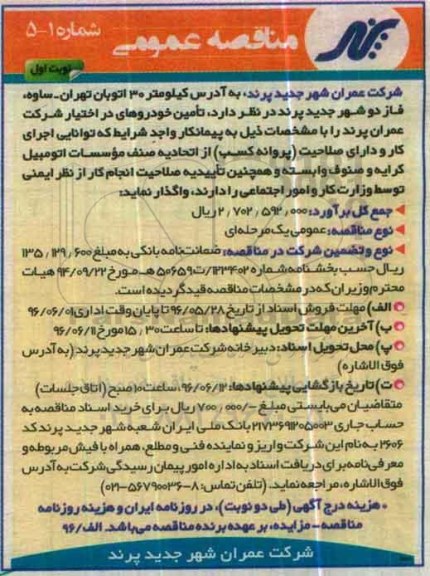 مناقصه عمومی
شماره ۱-۵
نوبت اول
شرکت عمران شهر جدید پرند، به آدرس کیلومتر ۳۰ اتوبان تهران-ساوه،
فاز دو شهر جدید پرند در نظر دارد، تأمین خودروهای در اختیار شرکت
عمران پرند را با مشخصات ذیل به پیمانکار واجد شرایط که توانایی اجرای
کار و دارای صلاحیت (پروانه کسب) از اتحادیه صنف مؤسسات اتومبیل
کرایه و صنوف وابسته و همچنین تأییدیه صلاحیت انجام کار از نظر ایمنی
توسط وزارت کار و امور اجتماعی را دارند، واگذار نماید:
جمع کل برآورد: ۲/۷۰۲/۵۹۲/۰۰۰ ریال
نوع مناقصه: عمومی یک مرحله‌ای
نوع و تضمین شرکت در مناقصه: ضمانت‌نامه بانکی به مبلغ ۱۳۵/۱۲۹/۶۰۰
ریال حسب بخشنامه شماره ۱۲۳۴۰۲/ت۵۰۶۵۹هـ مورخ ۹۴/۰۹/۲۲ هیات
محترم وزیران که در مشخصات مناقصه قید گردیده است.
الف) مهلت فروش اسناد از تاریخ ۹۶/۰۵/۲۸ تا پایان وقت اداری ۹۶/۰۶/۰۱
ب) آخرین مهلت تحویل پیشنهادها: تا ساعت ۱۵/۳۰ مورخ ۹۶/۰۶/۱۱
پ) محل تحویل اسناد: دبیرخانه شرکت عمران شهر جدید پرند (به آدرس
فوق الاشاره)
ت) تاریخ بازگشایی پیشنهادها: ۹۶/۰۶/۱۲، ساعت ۱۰ صبح (اتاق جلسات)
متقاضیان می‌بایستی مبلغ -/۷۰۰/۰۰۰ ریال برای خرید اسناد مناقصه به
حساب جاری ۲۱۷۳۶۹۱۲۰۵۰۰۳ بانک ملی ایران شعبه شهر جدید پرند کد
۲۶۰۶ به نام این شرکت واریز و نماینده فنی و مطلع، همراه با فیش مربوطه و
معرفی‌نامه برای دریافت اسناد به اداره امور پیمان رسیدگی شرکت به آدرس
فوق الاشاره، مراجعه نماید. (تلفن تماس: ۸-۵۶۷۹۰۰۳۶-۰۲۱)
هزینه درج آگهی (طی دو نوبت)، در روزنامه ایران و هزینه روزنامه
مناقصه-مزایده، بر عهده برنده مناقصه می‌باشد. الف/۹۶
شرکت عمران شهر جدید پرند